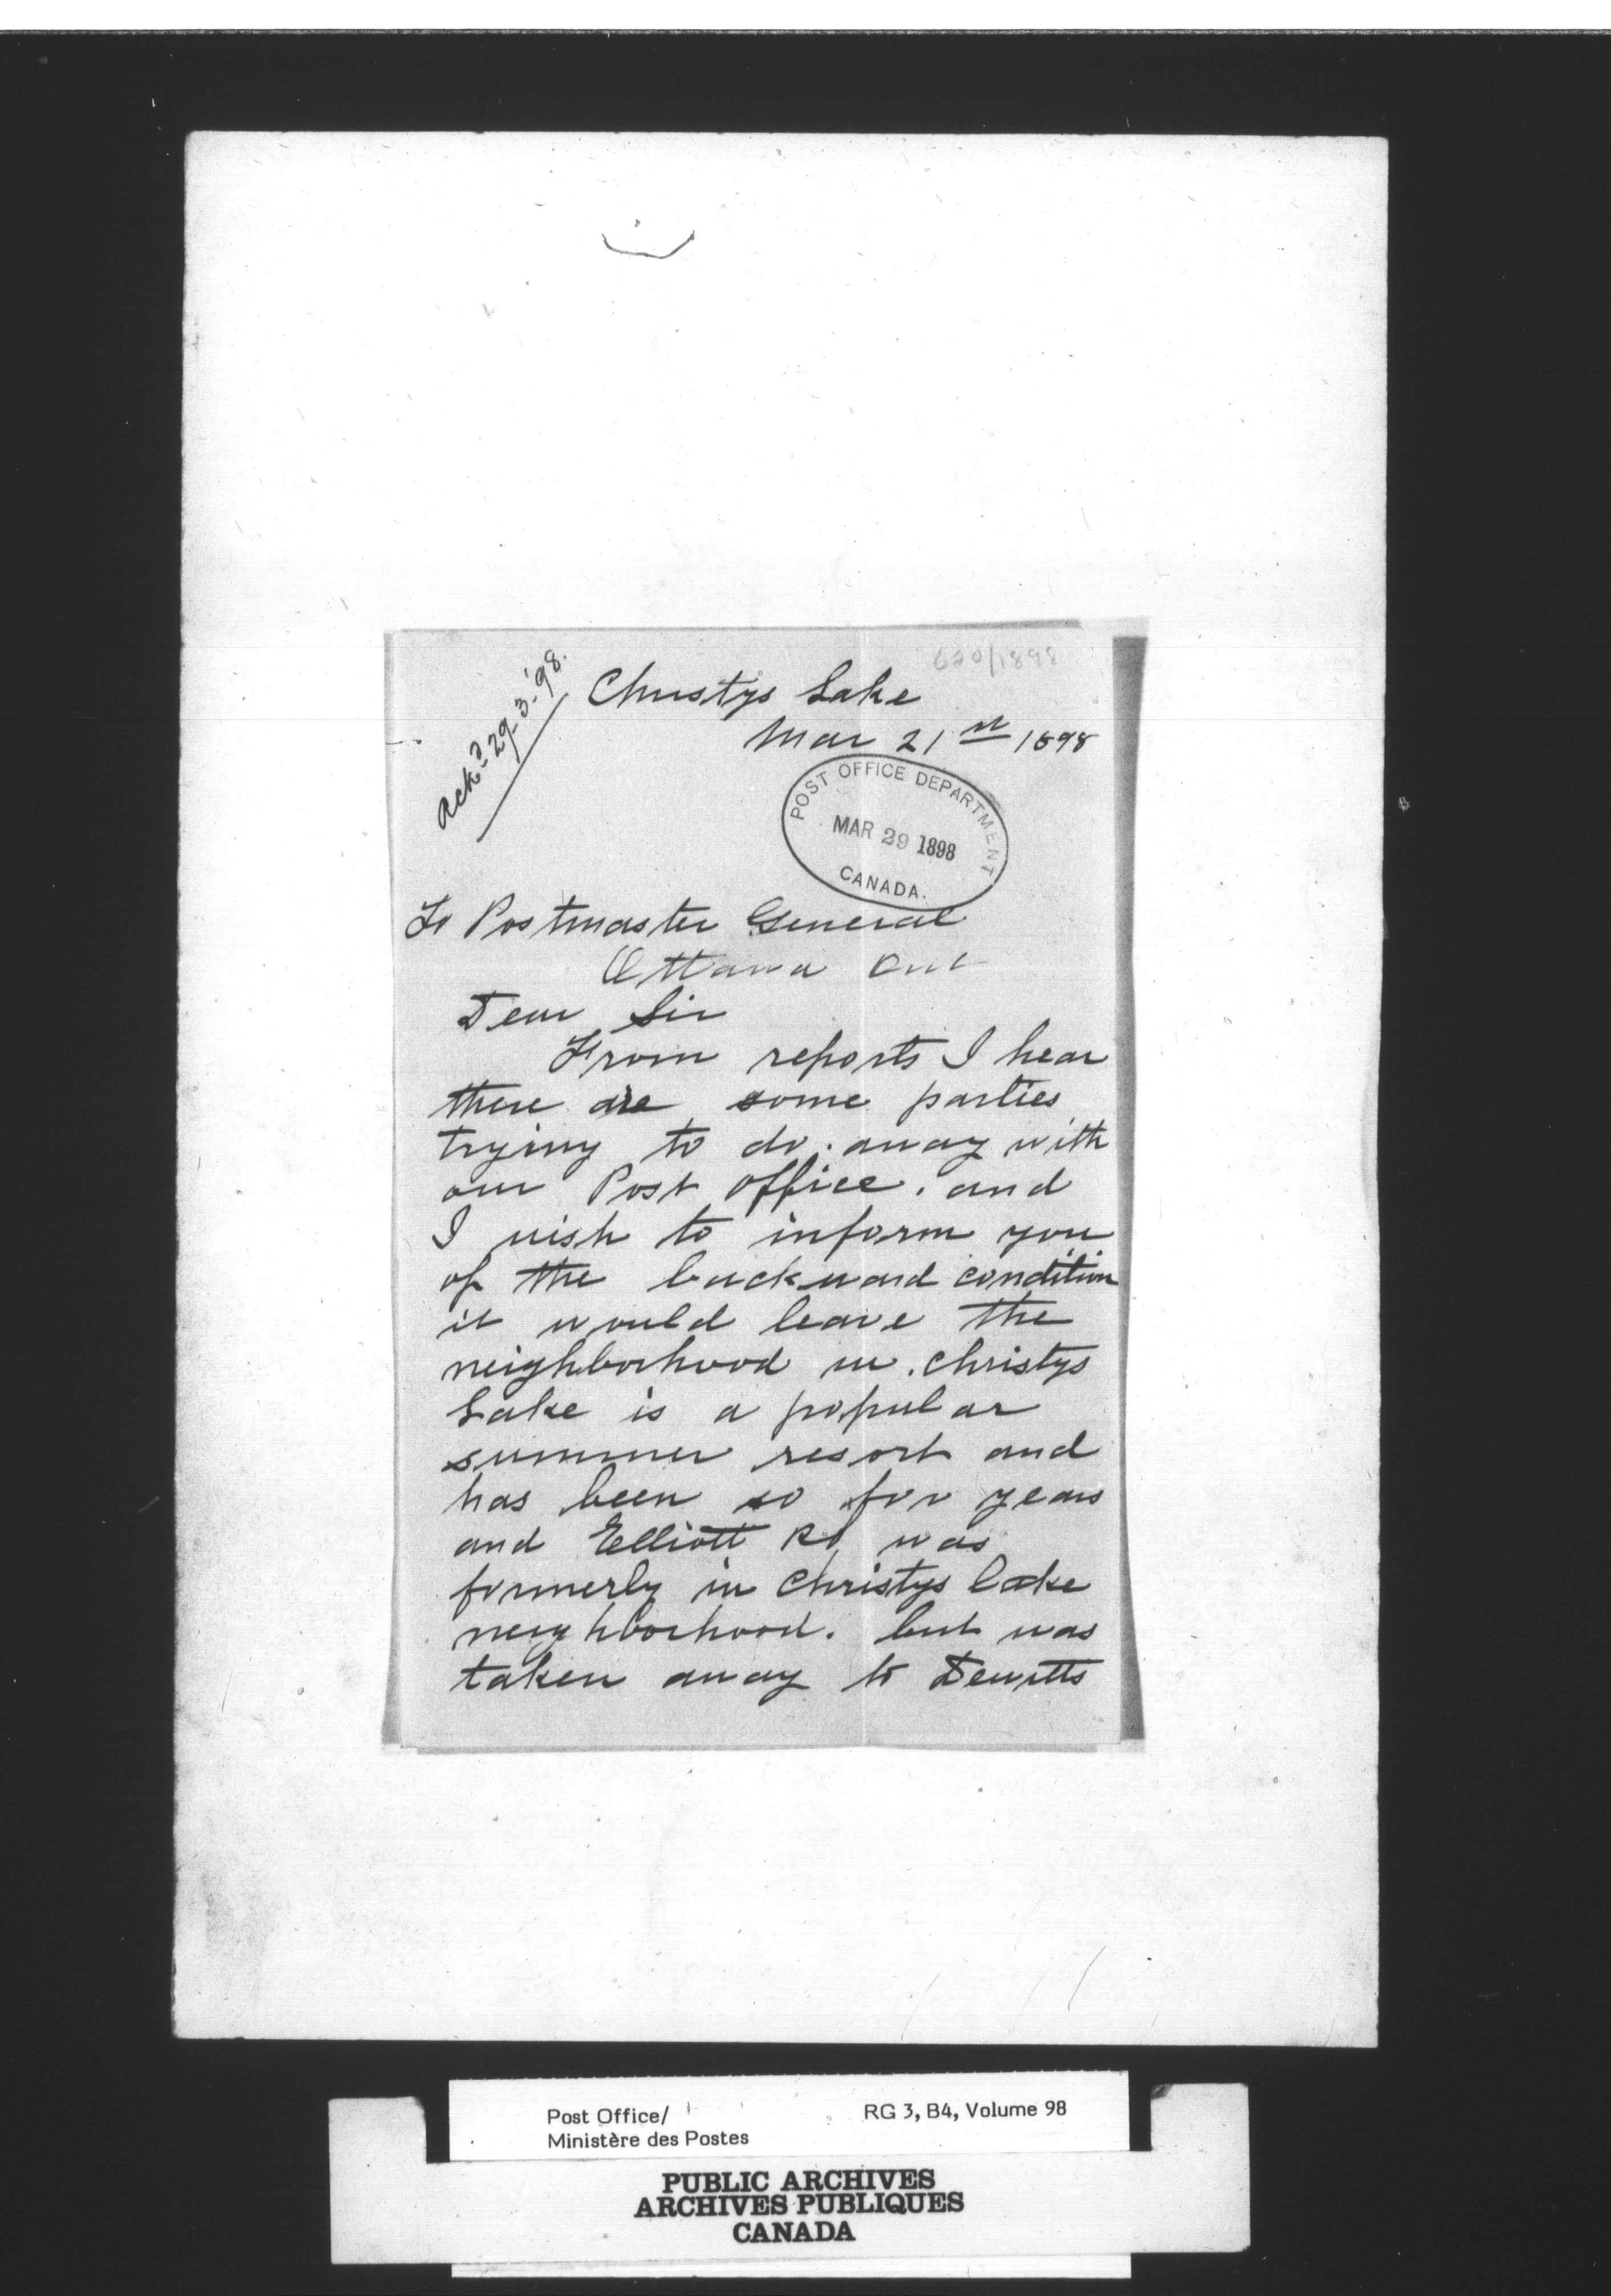 620/1898
Ackd 29.3.'98.
Christys Lake
Mar 21st 1898
POST OFFICE DEPARTMENT
MAR 29 1898
CANADA.
To Postmaster General
Ottawa Ont
Dear Sir
From reports I hear
there are some parties
trying to do. away with
our Post office. and
I wish to inform you
of the backward condition
it would leave the
neighborhood in. Christys
Lake is a popular
summer resort and
has been so for years
and Elliott P.O was
formerly in Christys Lake
neighborhood. but was
taken away to Dewitts
Post Office/
Ministère des Postes
RG 3, B4, Volume 98
PUBLIC ARCHIVES
ARCHIVES PUBLIQUES
CANADA